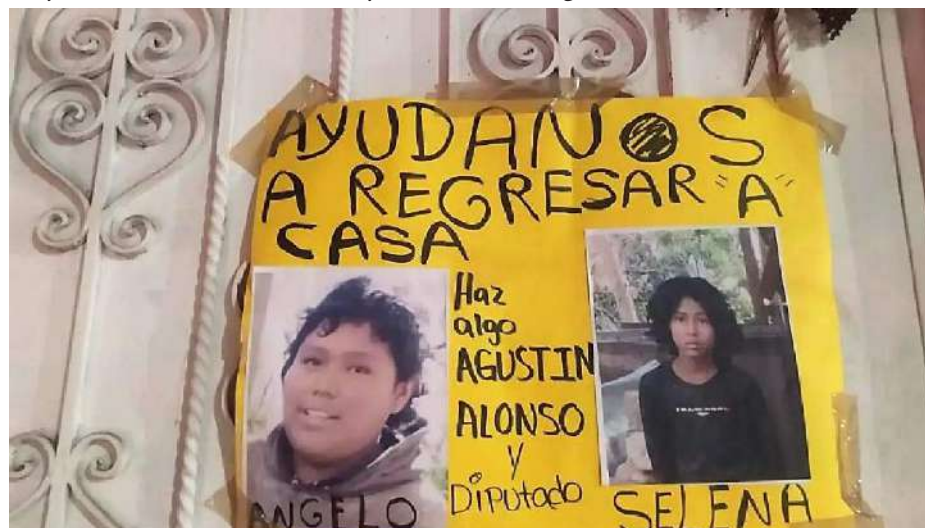 AYUDANOS
A REGRESAR "A"
CASA
Haz
algo
AGUSTIN
ALONSO
Y
DiPutado
ANGELO
SELENA